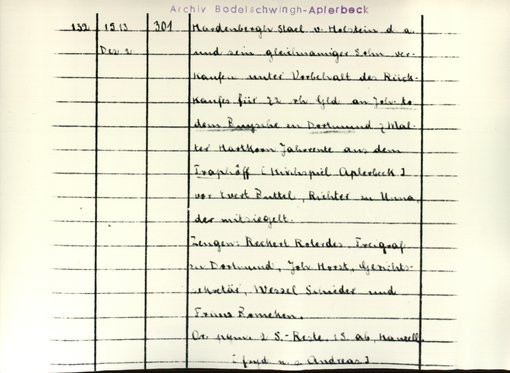 Archiv Bodelschwingh-Aplerbeck
132 1513 301 Hardenbergh Stael v. Holstein d. a.
Dez. 2 und sein gleichnamiger Sohn ver-
kaufen unter Vorbehalt des Rück-
kaufes für 22 rh Gld an Joh. to
dem Busche in Dortmund 7 Mal-
ter Hartkorn Jahrente aus dem
Traphöff [Kirchspiel Aplerbeck]
vor Evert Buttel, Richter zu Unna,
der mitsiegelt.
Zeugen: Reckert Rolerdes, Freigraf
zu Dortmund, Joh Horst, Gerichts-
sekretär, Wessel Schieder und
Franz Romeken.
Or. 2 S.-Reste, 1 S. ab,
Andreas]